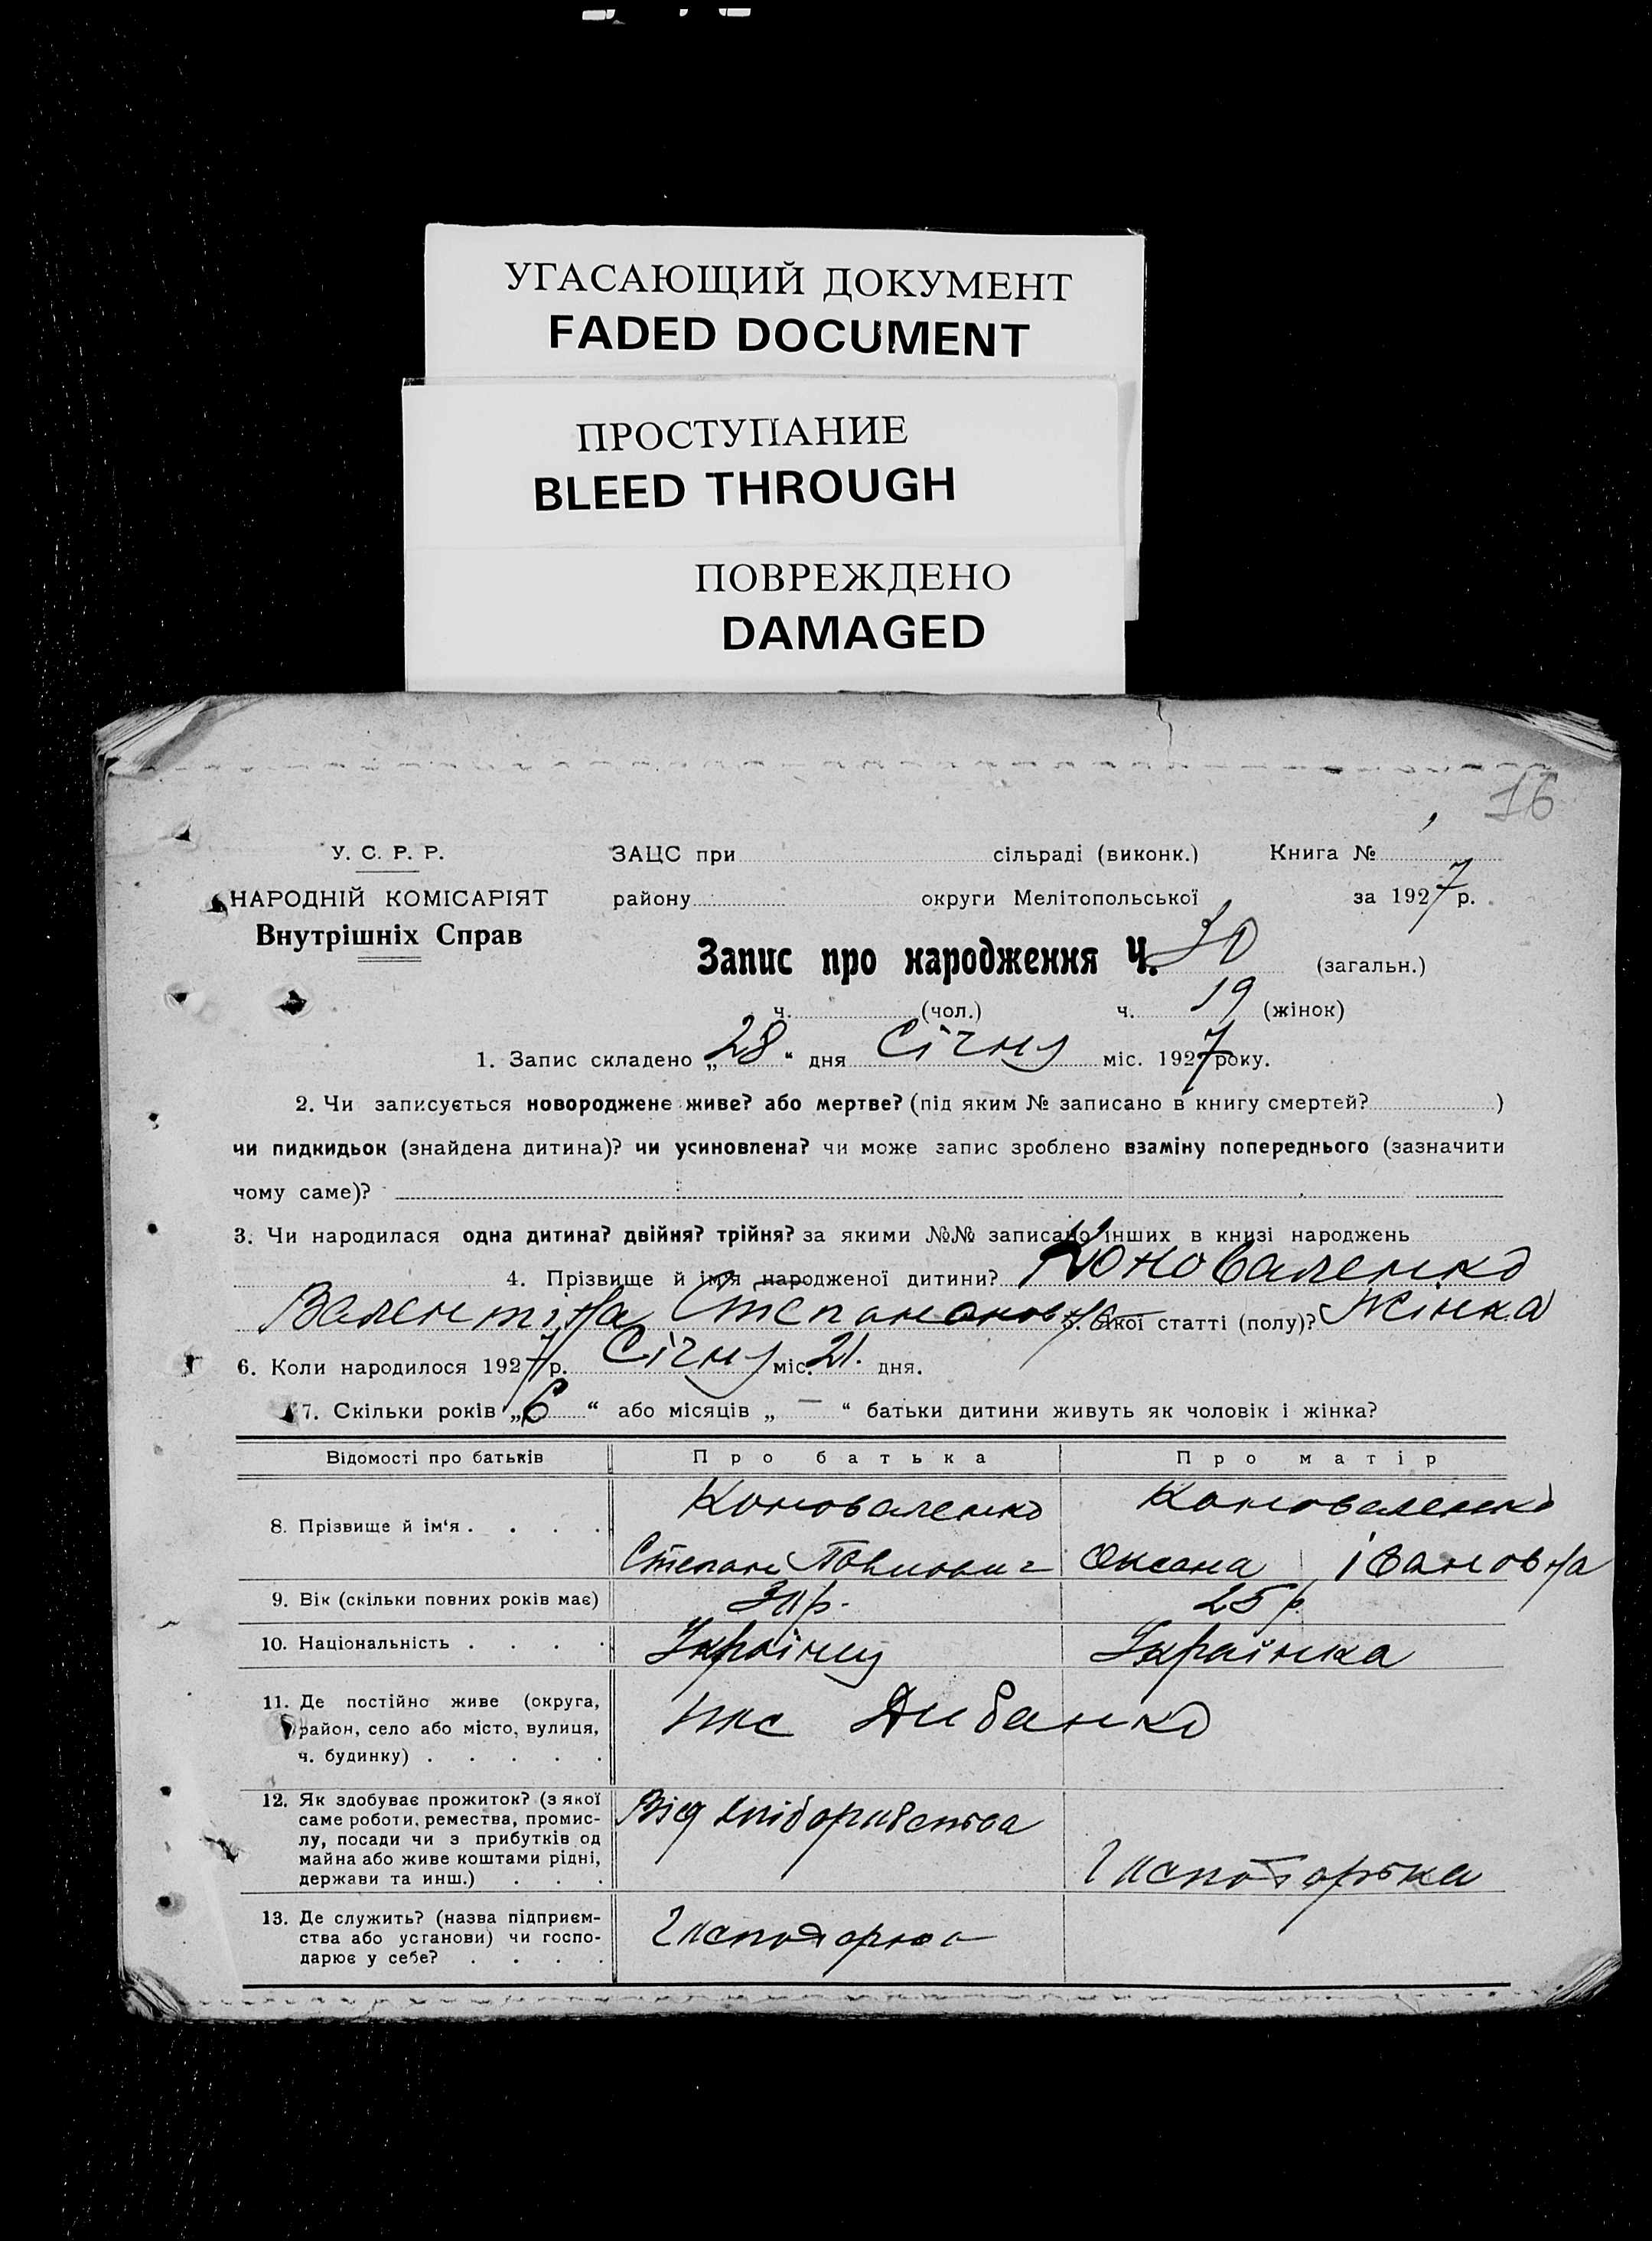 УГАСАЮЩИЙ ДОКУМЕНТ
FADED DOCUMENT
ПРОСТУПАНИЕ
BLEED THROUGH
ПОВРЕЖДЕНО
DAMAGED
16
У. С. Р. Р. ЗАЦС при сільраді (виконк.) Книга №
НАРОДНІЙ КОМІСАРІЯТ району округи Мелітопольської за 1927 р.
Внутрішніх Справ
Запис про народження Ч. 30 (загальн.)
ч. (чол.) ч. 19 (жінок)
1. Запис складено „28“ дня Січня міс. 1927 року.
2. Чи записується новороджене живе? або мертве? (під яким № записано в книгу смертей? )
чи пидкидьок (знайдена дитина)? чи усиновлена? чи може запис зроблено взаміну попереднього (зазначити
чому саме)?
3. Чи народилася одна дитина? двійня? трійня? за якими №№ записано інших в книзі народжень
4. Прізвище й ім'я народженої дитини? Коноваленко
Валентіна 5. Якої статті (полу)? Жінка
6. Коли народилося 1927 р. Січня міс. 21. дня.
7. Скільки років „6“ або місяців „—“ батьки дитини живуть як чоловік і жінка?
Відомості про батьків Про батька Про матір
8. Прізвище й ім‘я . . . . Коноваленко Коноваленко
Степан Оксана івановна
9. Вік (скільки повних років має) 25 р.
10. Національність . . . . Українец Українка
11. Де постійно живе (округа,
район, село або місто, вулиця,
ч. будинку) . . . . .
12. Як здобуває прожиток? (з якої
саме роботи, ремества, промис-
лу, посади чи з прибутків од
майна або живе коштами рідні,
держави та инш.) . . .
Від хліборобства
13. Де служить? (назва підприєм-
ства або установи) чи госпо-
дарює у себе? . . . .